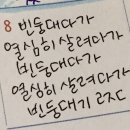 8 빈둥대다가
열심히 살려다가
빈둥대다가
열심히 살려다가
빈둥대기 2주ㄷ